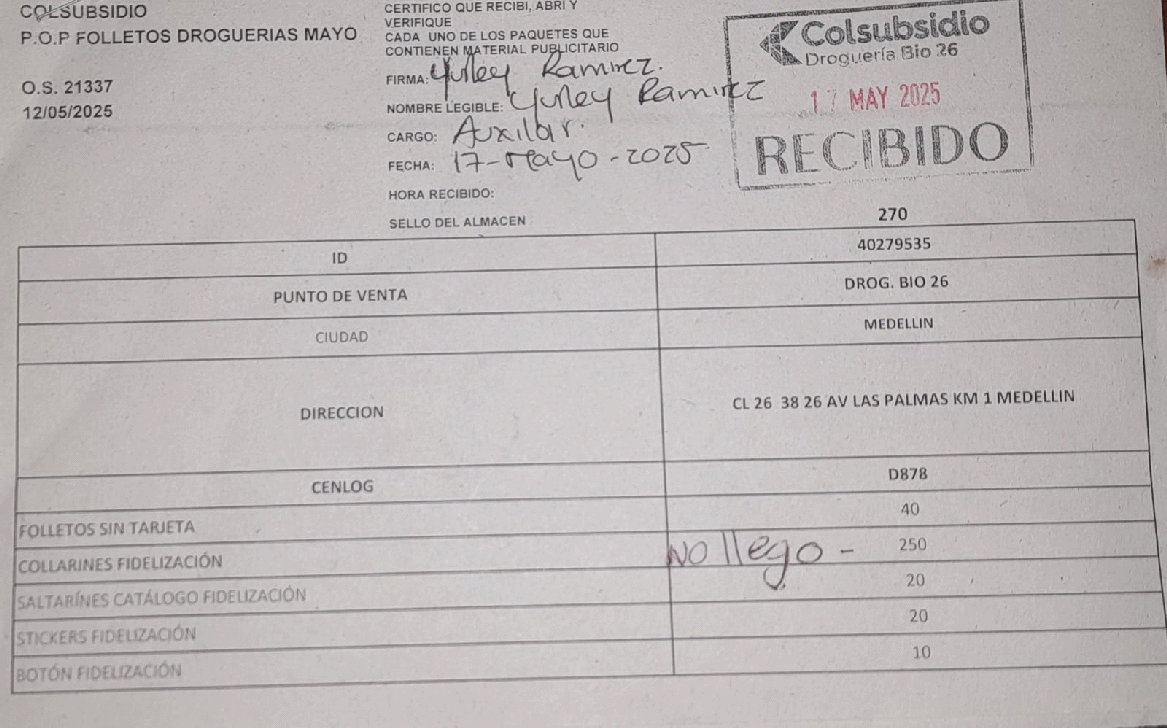 COLSUBSIDIO
P.O.P FOLLETOS DROGUERIAS MAYO
O.S. 21337
12/05/2025
CERTIFICO QUE RECIBI, ABRI Y
VERIFIQUE
CADA UNO DE LOS PAQUETES QUE
CONTIENEN MATERIAL PUBLICITARIO
FIRMA: Yurley Ramirez.
NOMBRE LEGIBLE: Yurley Ramirez
CARGO: Auxilar.
FECHA: 17-Mayo-2025
HORA RECIBIDO:
SELLO DEL ALMACEN
Colsubsidio
Droguería Bio 26
17 MAY 2025
RECIBIDO
270
ID 40279535
PUNTO DE VENTA DROG. BIO 26
CIUDAD MEDELLIN
DIRECCION CL 26 38 26 AV LAS PALMAS KM 1 MEDELLIN
CENLOG D878
FOLLETOS SIN TARJETA 40
COLLARINES FIDELIZACIÓN No llego - 250
SALTARÍNES CATÁLOGO FIDELIZACIÓN 20
STICKERS FIDELIZACIÓN 20
BOTÓN FIDELIZACIÓN 10